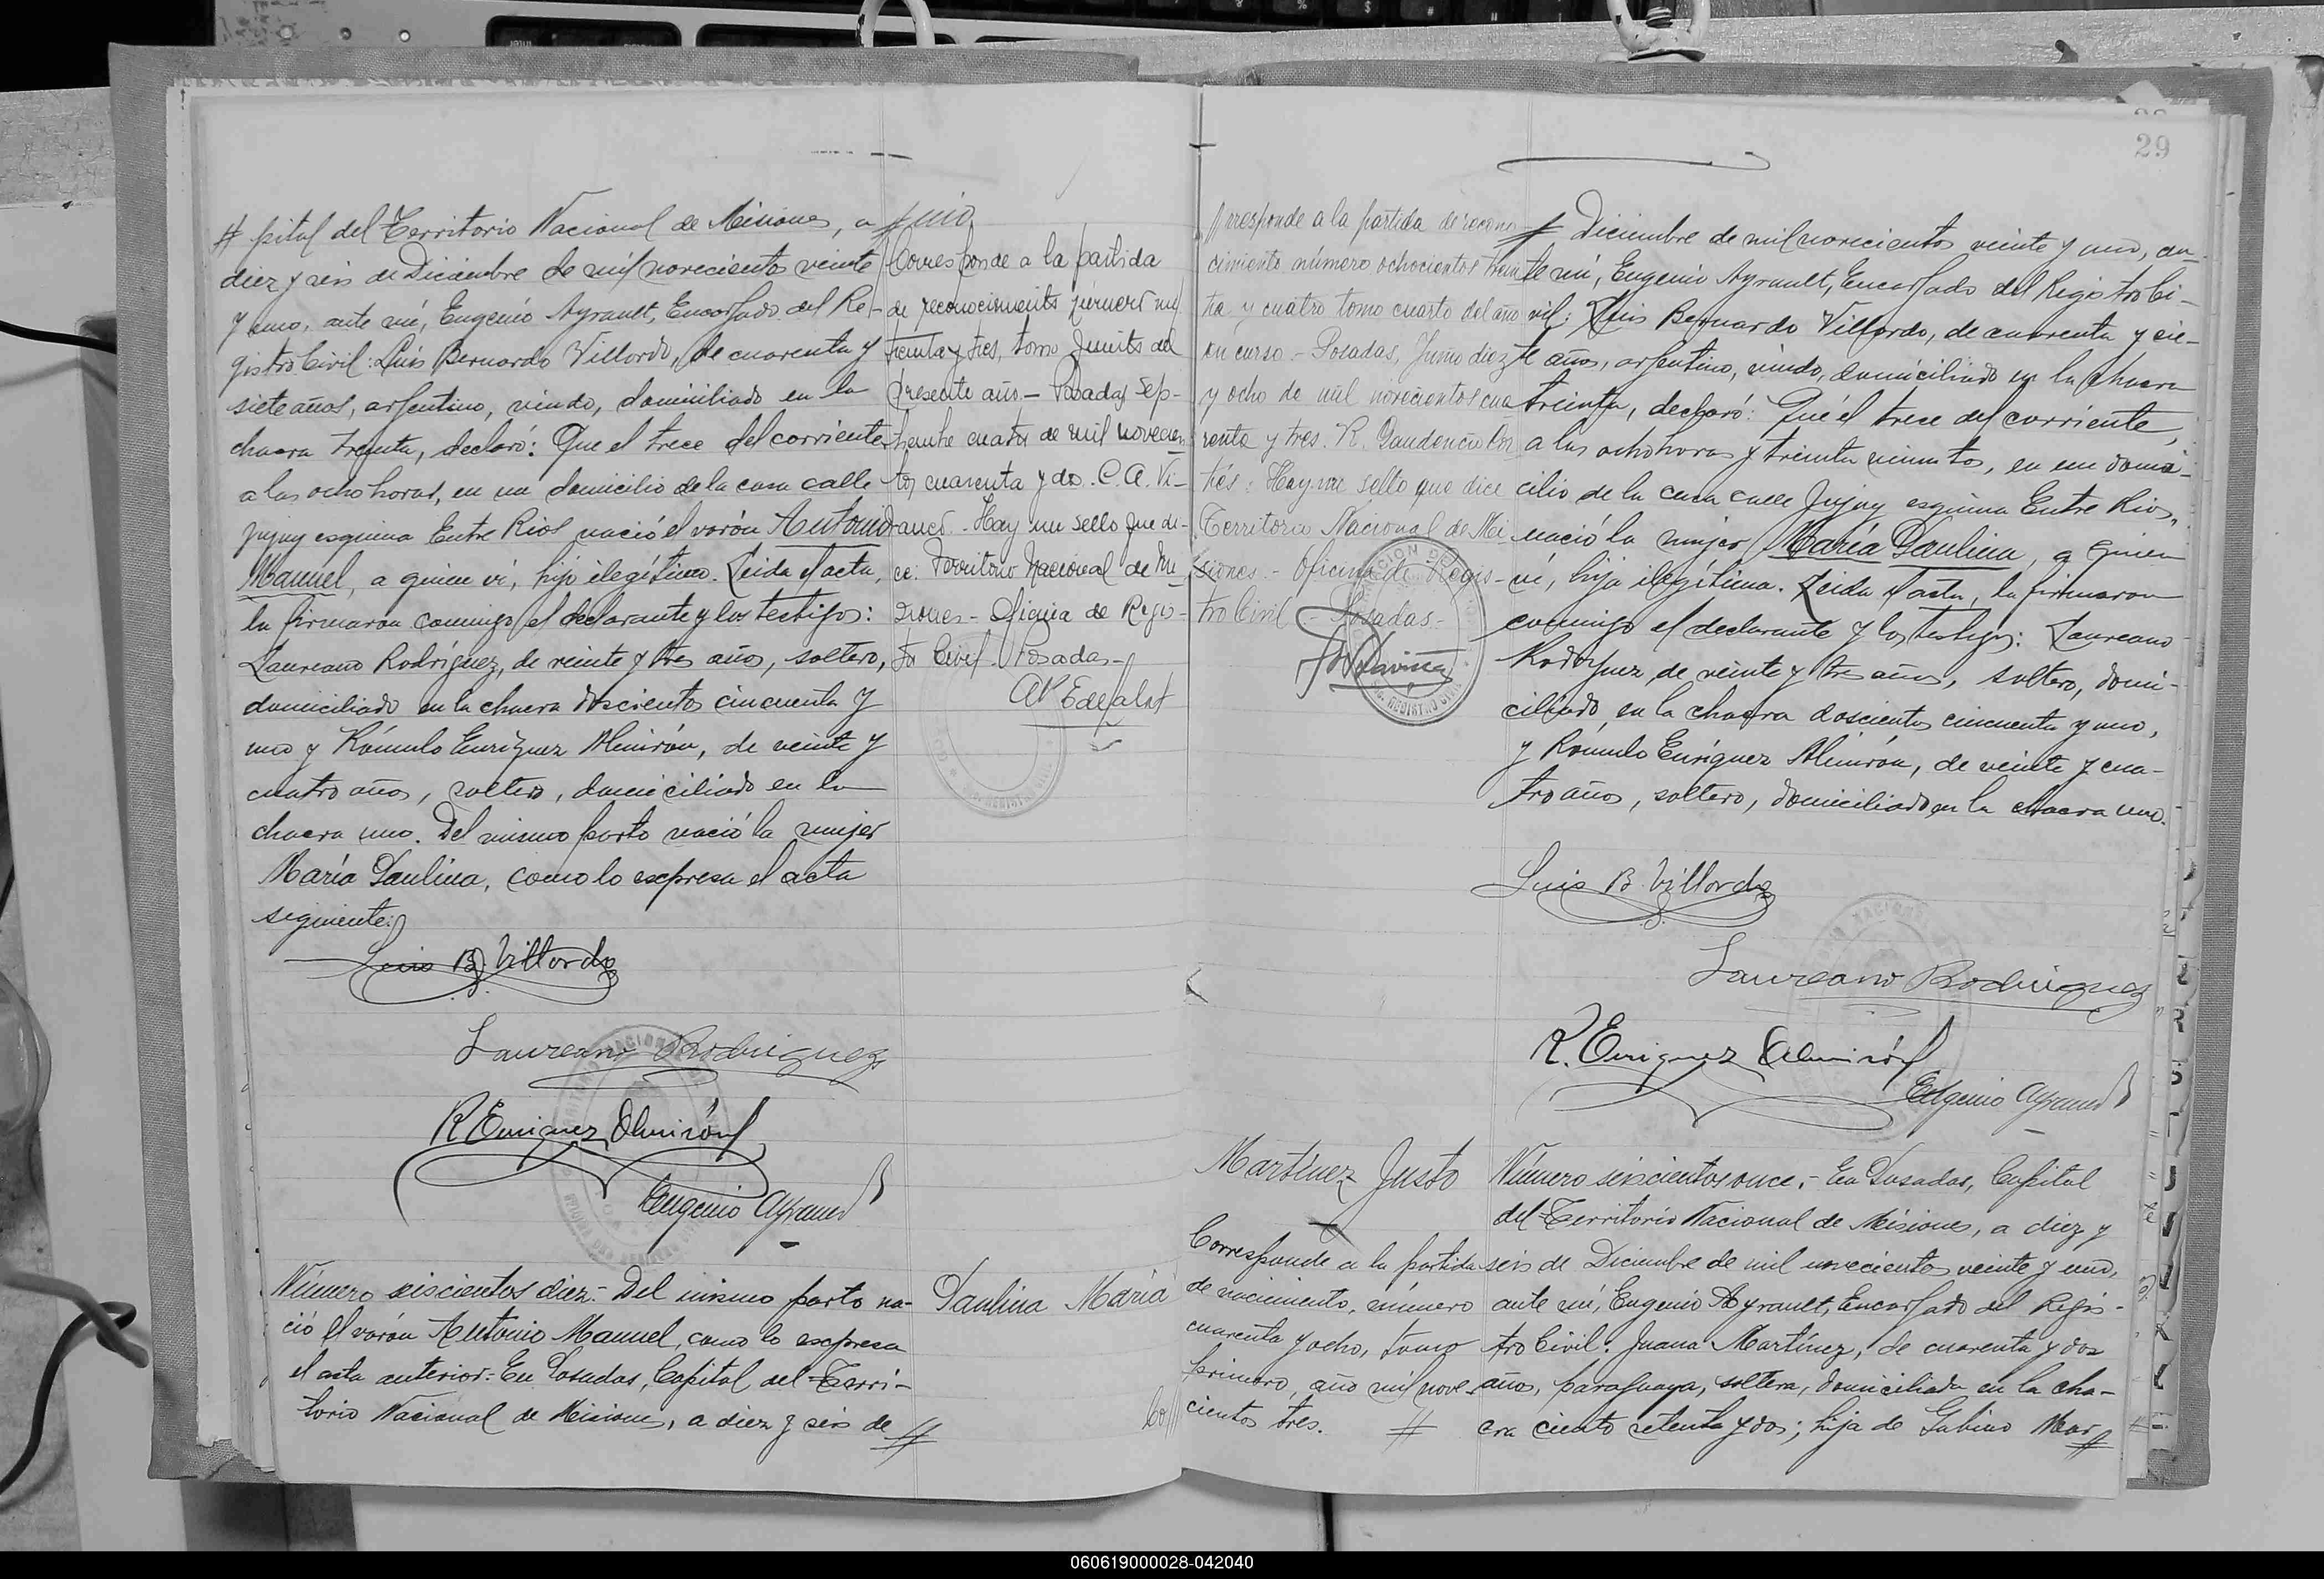 # pital del Territorio Nacional de Misiones, a
diez y seis de Diciembre de mil novecientos veinte
y uno, ante mí, Eugenio Ayrault, Encargado del Re-
gistro Civil: Luis Bernardo Villordo, de cuarenta y
siete años, argentino, viudo, domiciliado en la
chacra treinta, declaró: Que el trece del corriente
a las ocho horas, en un domicilio de la casa calle
Jujuy esquina Entre Rios nació el varón Antonio
Manuel, a quien ví, hijo ilegítimo. Leida el acta,
la firmaron conmigo el declarante y los testigos:
Laureano Rodríguez, de veinte y tres años, soltero,
domiciliado en la chacra doscientos cincuenta y
uno y Rómulo Enriquez Almirón, de veinte y
cuatro años, soltero, domiciliado en la
chacra uno. Del mismo parto nació la mujer
María Paulina, como lo expresa el acta
siguiente:
Luis B. Villordo
Laureano Rodriguez
R Enriquez Almirón
Eugenio Ayrault
Número seiscientos diez.- Del mismo parto na-
ció el varón Antonio Manuel, como lo expresa
el acta anterior: En Posadas, Capital del Terri-
torio Nacional de Misiones, a diez y seis de #
# nio
Corresponde a la partida
de reconocimiento número mil
treinta y tres, tomo quinto del
presente año.- Posadas Sep-
tiembre cuatro de mil novecien-
tos cuarenta y dos. C. A. Vi-
Hay un sello que di-
ce: Territorio Nacional de Mi-
siones - Oficina de Regis-
tro Civil. Posadas-
Paulina María
Co
29
rresponde a la partida de recono-
cimiento número ochocientos trein
ta y cuatro tomo cuarto del año
en curso.- Posadas, Junio diez
y ocho de mil novecientos cua
renta y tres. R. Gaudencio Cor
tés: Hay un sello que dice
Territorio Nacional de Mi-
siones.- Oficina de Regis-
tro Civil - Posadas-
# Diciembre de mil novecientos veinte y uno, an-
te mí, Eugenio Ayrault, Encargado del Registro Ci-
vil: Luis Bernardo Villordo, de cuarenta y sie-
te años, argentino, viudo, domiciliado en la chacra
treinta, declaró: Que el trece del corriente,
a las ocho horas y treinta minutos, en un domi-
cilio de la casa calle Jujuy esquina Entre Rios,
nació la mujer María Paulina, a quien
ví, hija ilegítima. Leida el acta, la firmaron
conmigo el declarante y los testigos: Laureano
Rodriguez, de veinte y tres años, soltero, domi-
ciliado en la chacra doscientos cincuenta y uno,
y Rómulo Enriquez Almirón, de veinte y cua-
tro años, soltero, domiciliado en la chacra uno.
Luis B. Villordo
Laureano Rodriguez
R. Enriquez Almirón
Eugenio Ayrault
Martínez Justo
Corresponde a la partida
de nacimiento, número
cuarenta y ocho, tomo
primero, año mil nove-
cientos tres. #
Número seiscientos once.- En Posadas, Capital
del Territorio Nacional de Misiones, a diez y
seis de Diciembre de mil novecientos veinte y uno,
ante mí, Eugenio Ayrault, Encargado del Regis-
tro Civil: Juana Martínez, de cuarenta y dos
años, paraguaya, soltera, domiciliada en la cha-
cra ciento setenta y dos; hija de Gabino Mar #
060619000028-042040